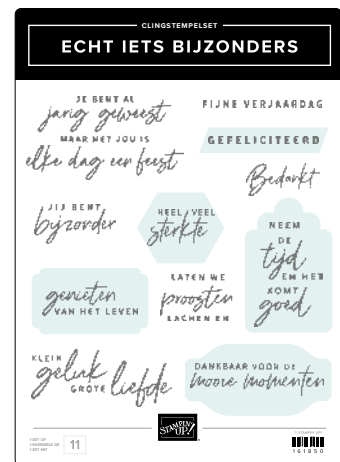 CLINGSTEMPELSET
ECHT IETS BIJZONDERS
JE BENT AL
jarig geweest
MAAR MET JOU IS
elke dag een feest
FIJNE VERJAARDAG
GEFELICITEERD
Bedankt
JIJ BENT
bijzonder
HEEL VEEL
sterkte
NEEM
DE
tijd
EN HET
KOMT
goed
genieten
VAN HET LEVEN
LATEN WE
proosten
LACHEN EN
KLEIN
geluk
GROTE liefde
DANKBAAR VOOR DE
mooie momenten
STAMPIN' UP!
11
© STAMPIN' UP!
161850